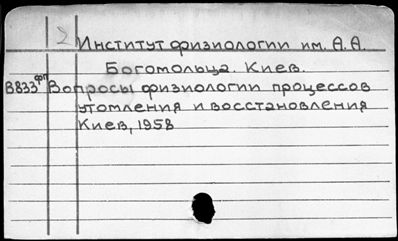 2 Институт физиологии им. А. А.
Богомольца. Киев.
В833 фп Вопросы физиологии процессов
утомления и восстановления
Киев, 1958